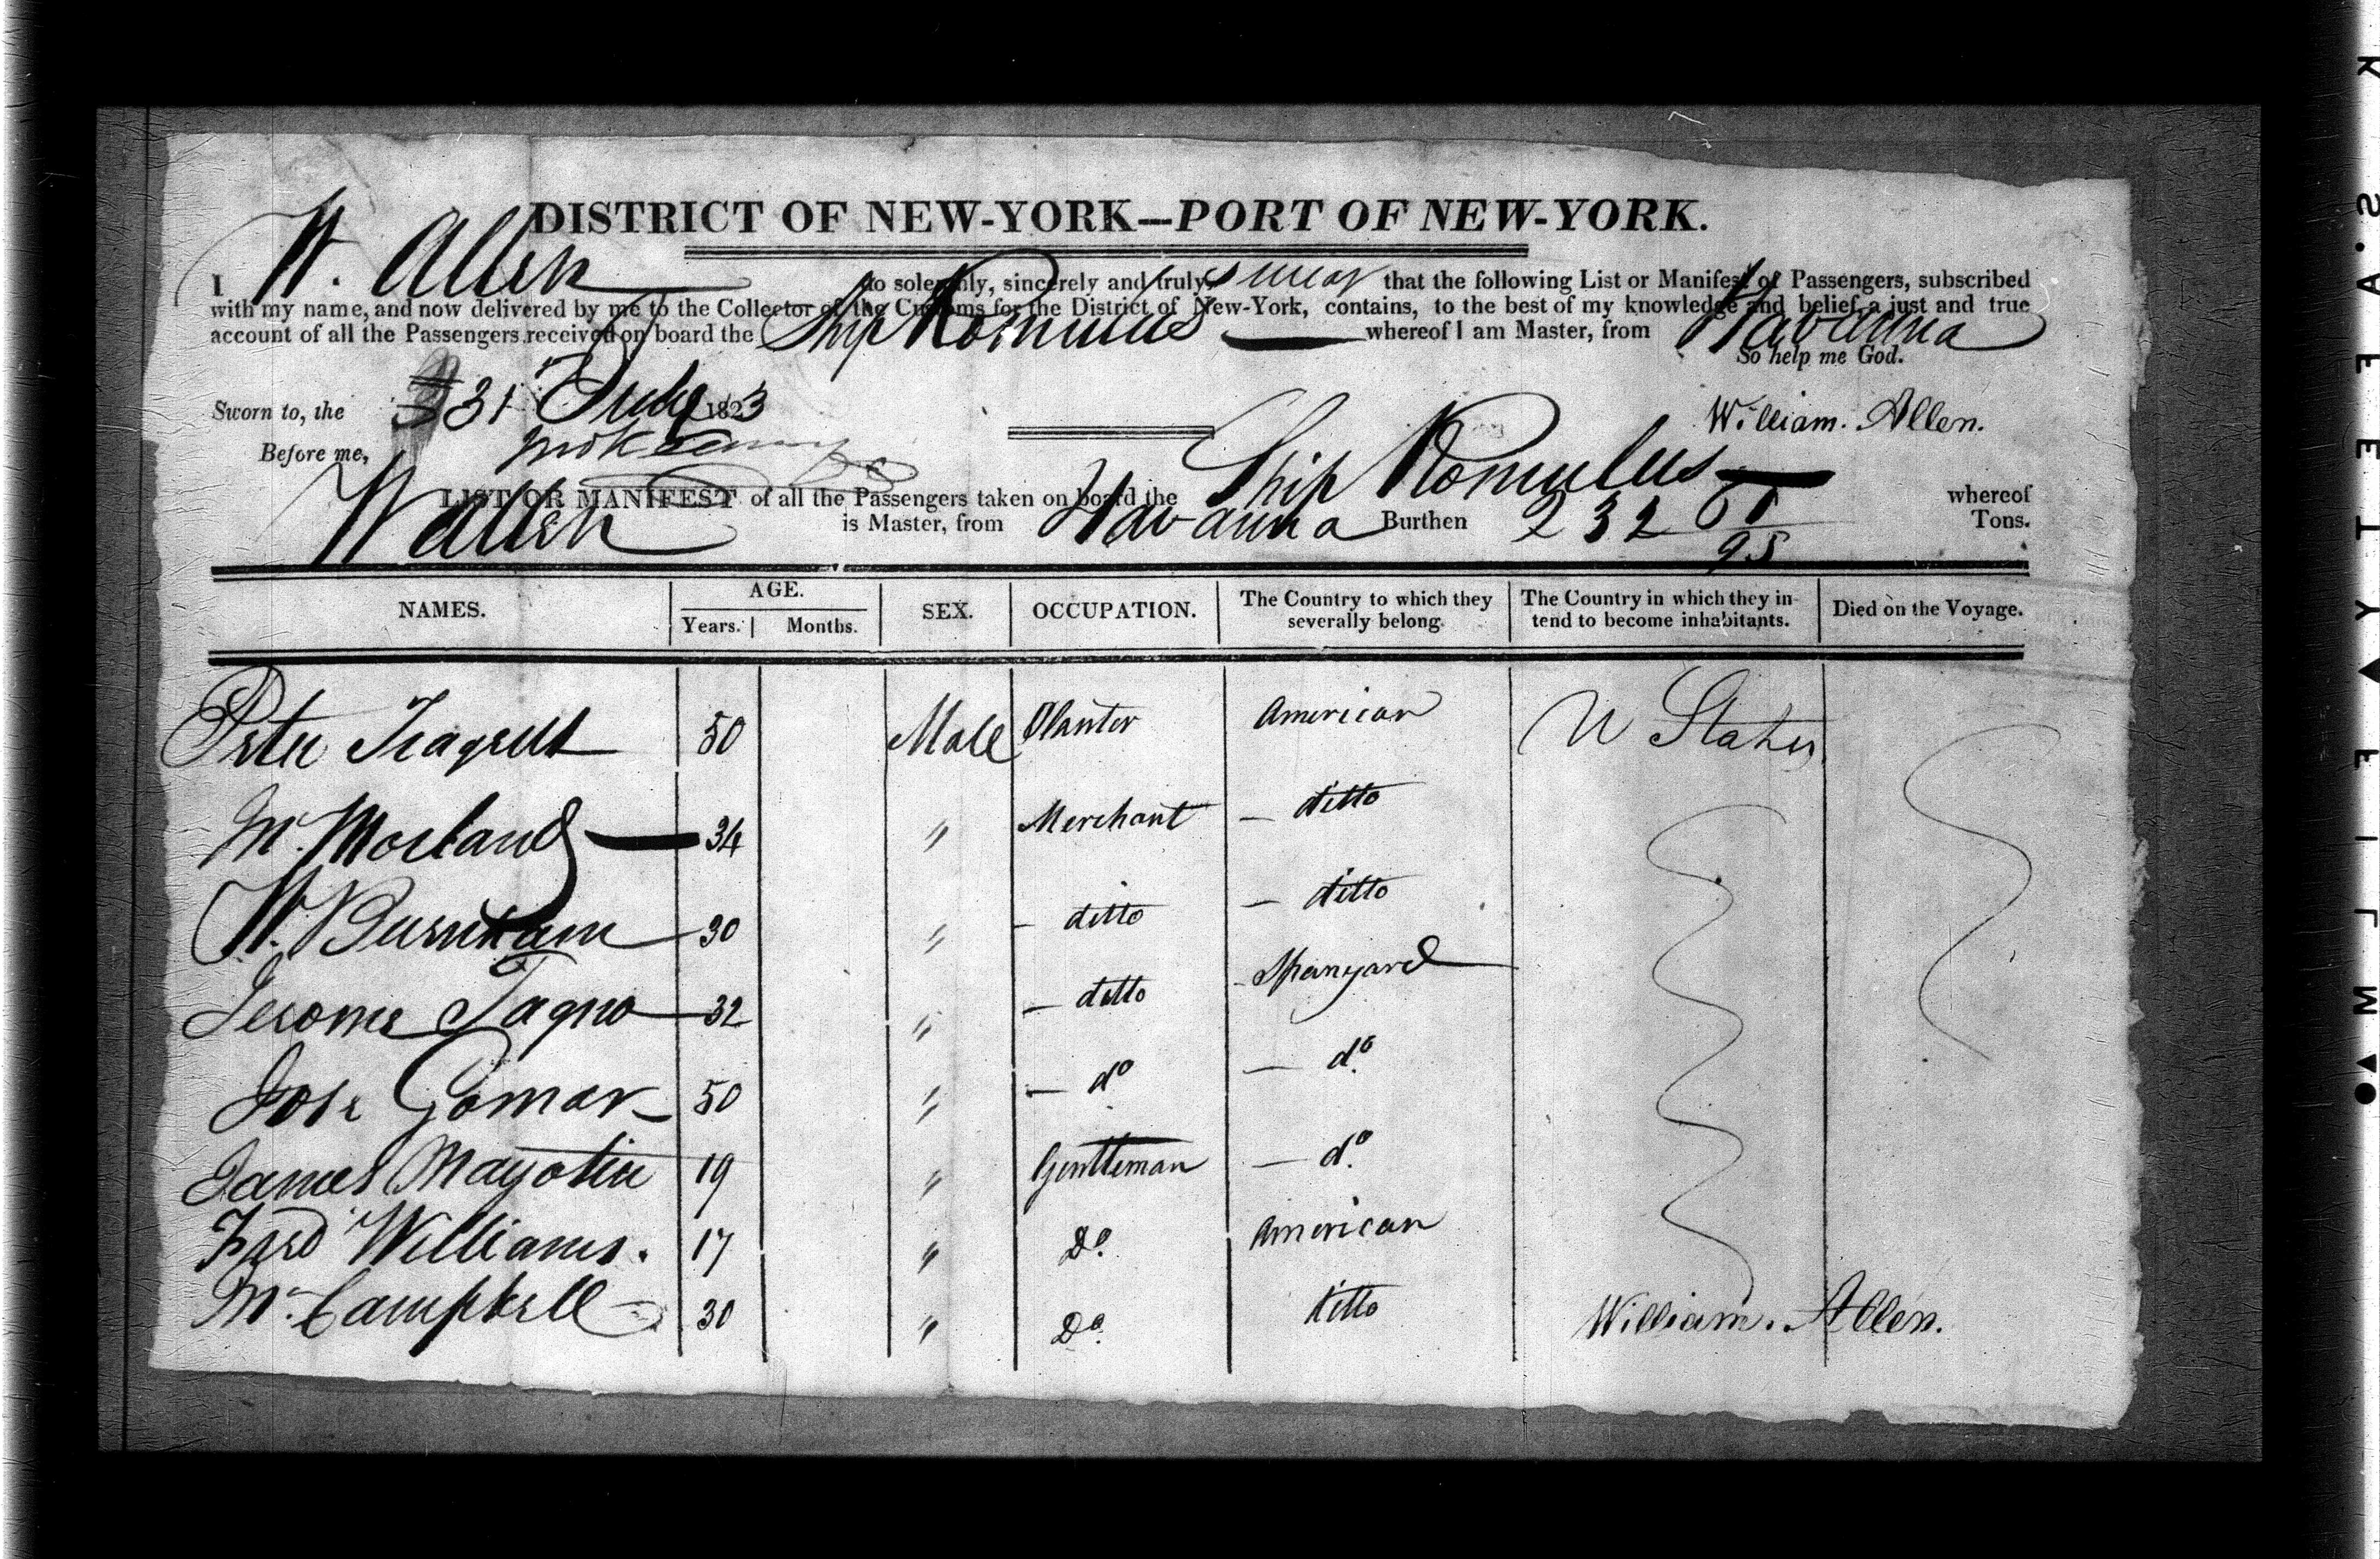 DISTRICT OF NEW-YORK—PORT OF NEW-YORK.
I W. Allen do solemnly, sincerely and truly swear that the following List or Manifest of Passengers, subscribed
with my name, and now delivered by me to the Collector of the Customs for the District of New-York, contains, to the best of my knowledge and belief, a just and true
account of all the Passengers received on board the Ship Romulus whereof I am Master, from Havanna
So help me God.
Sworn to, the 31 July 1823
William. Allen.
Before me,
LIST OR MANIFEST of all the Passengers taken on board the Ship Romulus whereof
W Allen is Master, from Havanna Burthen 232 61/95 Tons.
NAMES. AGE. Years. Months. SEX. OCCUPATION. The Country to which they severally belong. The Country in which they intend to become inhabitants. Died on the Voyage.
Peter 50 Male Planter American U States
Mr. Morland 34 " Merchant — ditto
W. Burnham 30 " — ditto — ditto
Jerome Tagno 32 " — ditto - Spanyard
Jose Gomar 50 " — do — do.
James 19 " Gentleman — do.
Fard Williams. 17 " Do. American
Mr. Campbell 30 " Do. ditto
William. Allen.